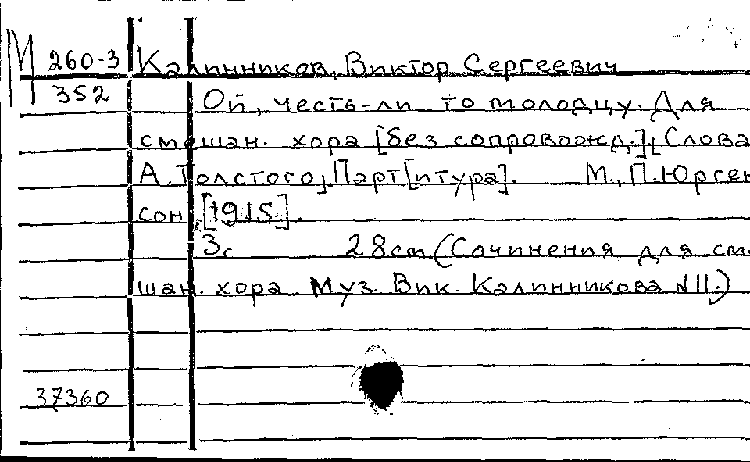 М 260-3 Калинников, Виктор Сергеевич
352 Ой, честь-ли то молодцу. Для
смешан. хора [без сопровожд.] [Слова
А. Толстого]. Парт[итура]. М., П. Юрген
сон, [1915].
3с. 28см (Сочинения для сме
шан. хора Муз. Вик. Калинникова №11.)
37360